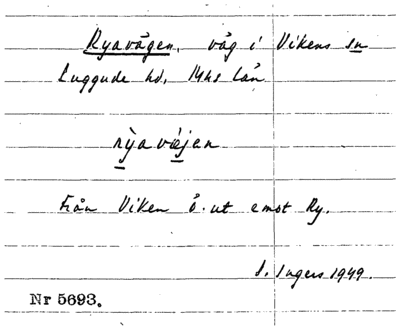 Ryavägen, väg i Vikens sn
Luggude hd, Mhs län
rỳa vä̀jen
Från Viken ö. ut emot Ry.
I. Ingers 1949.
Nr 5693.